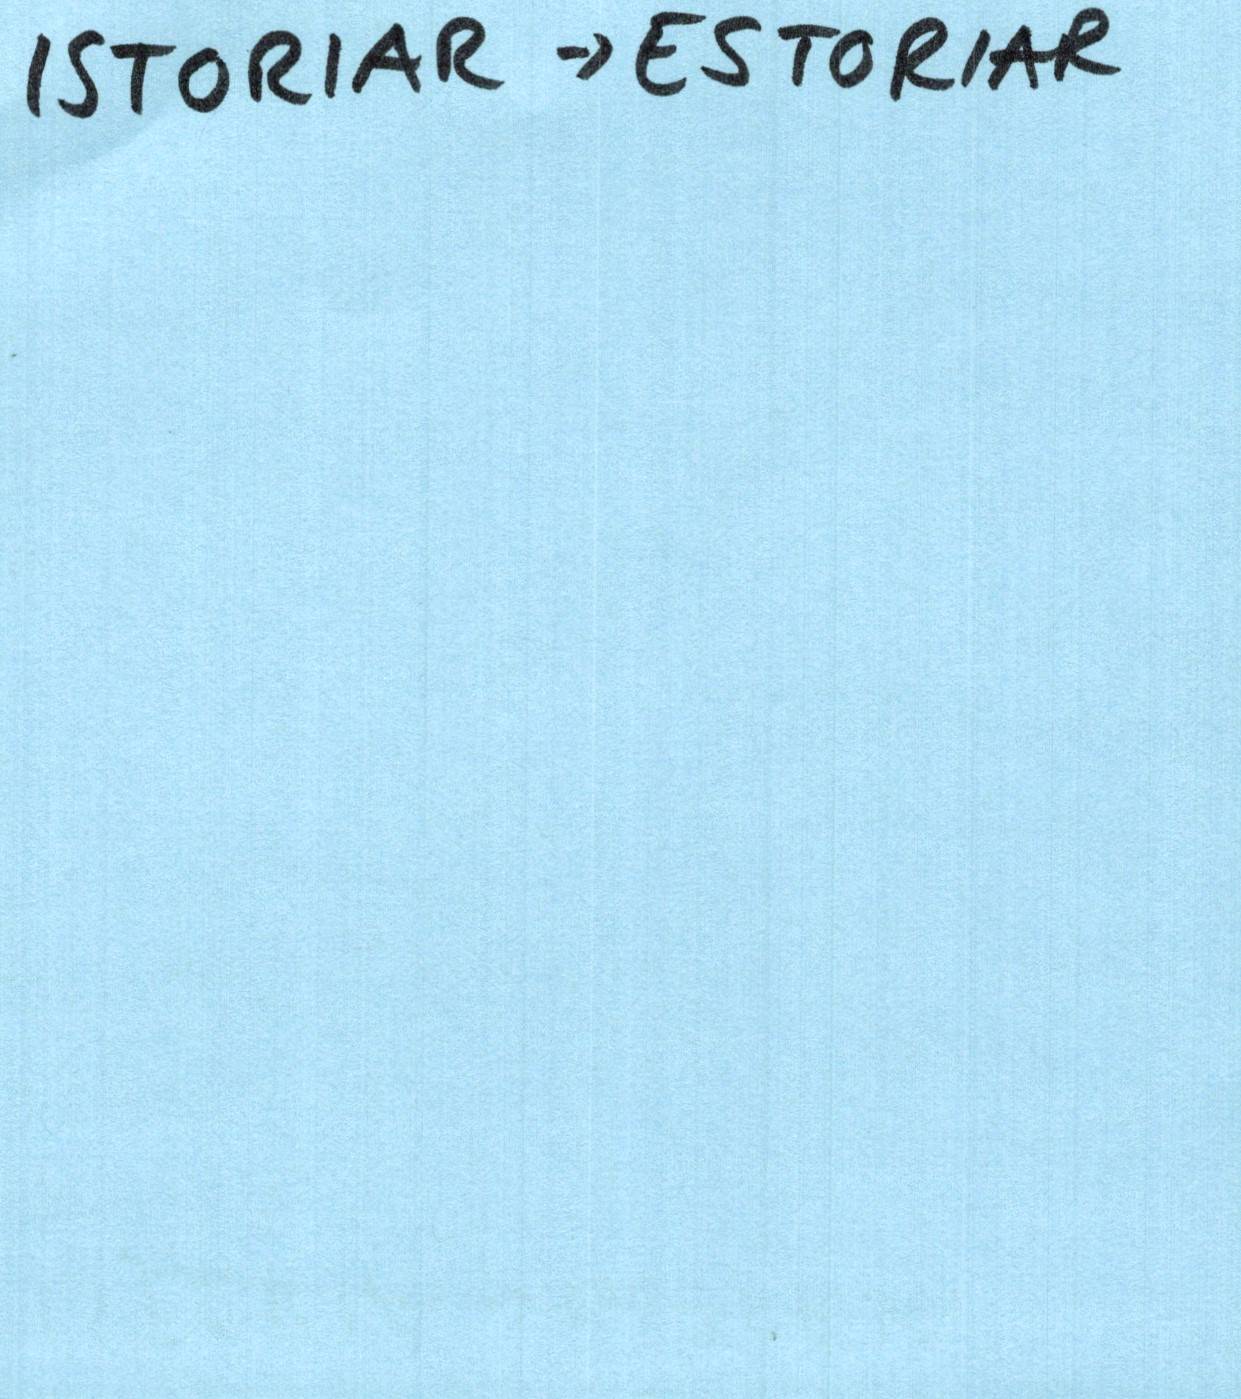 ISTORIAR → ESTORIAR